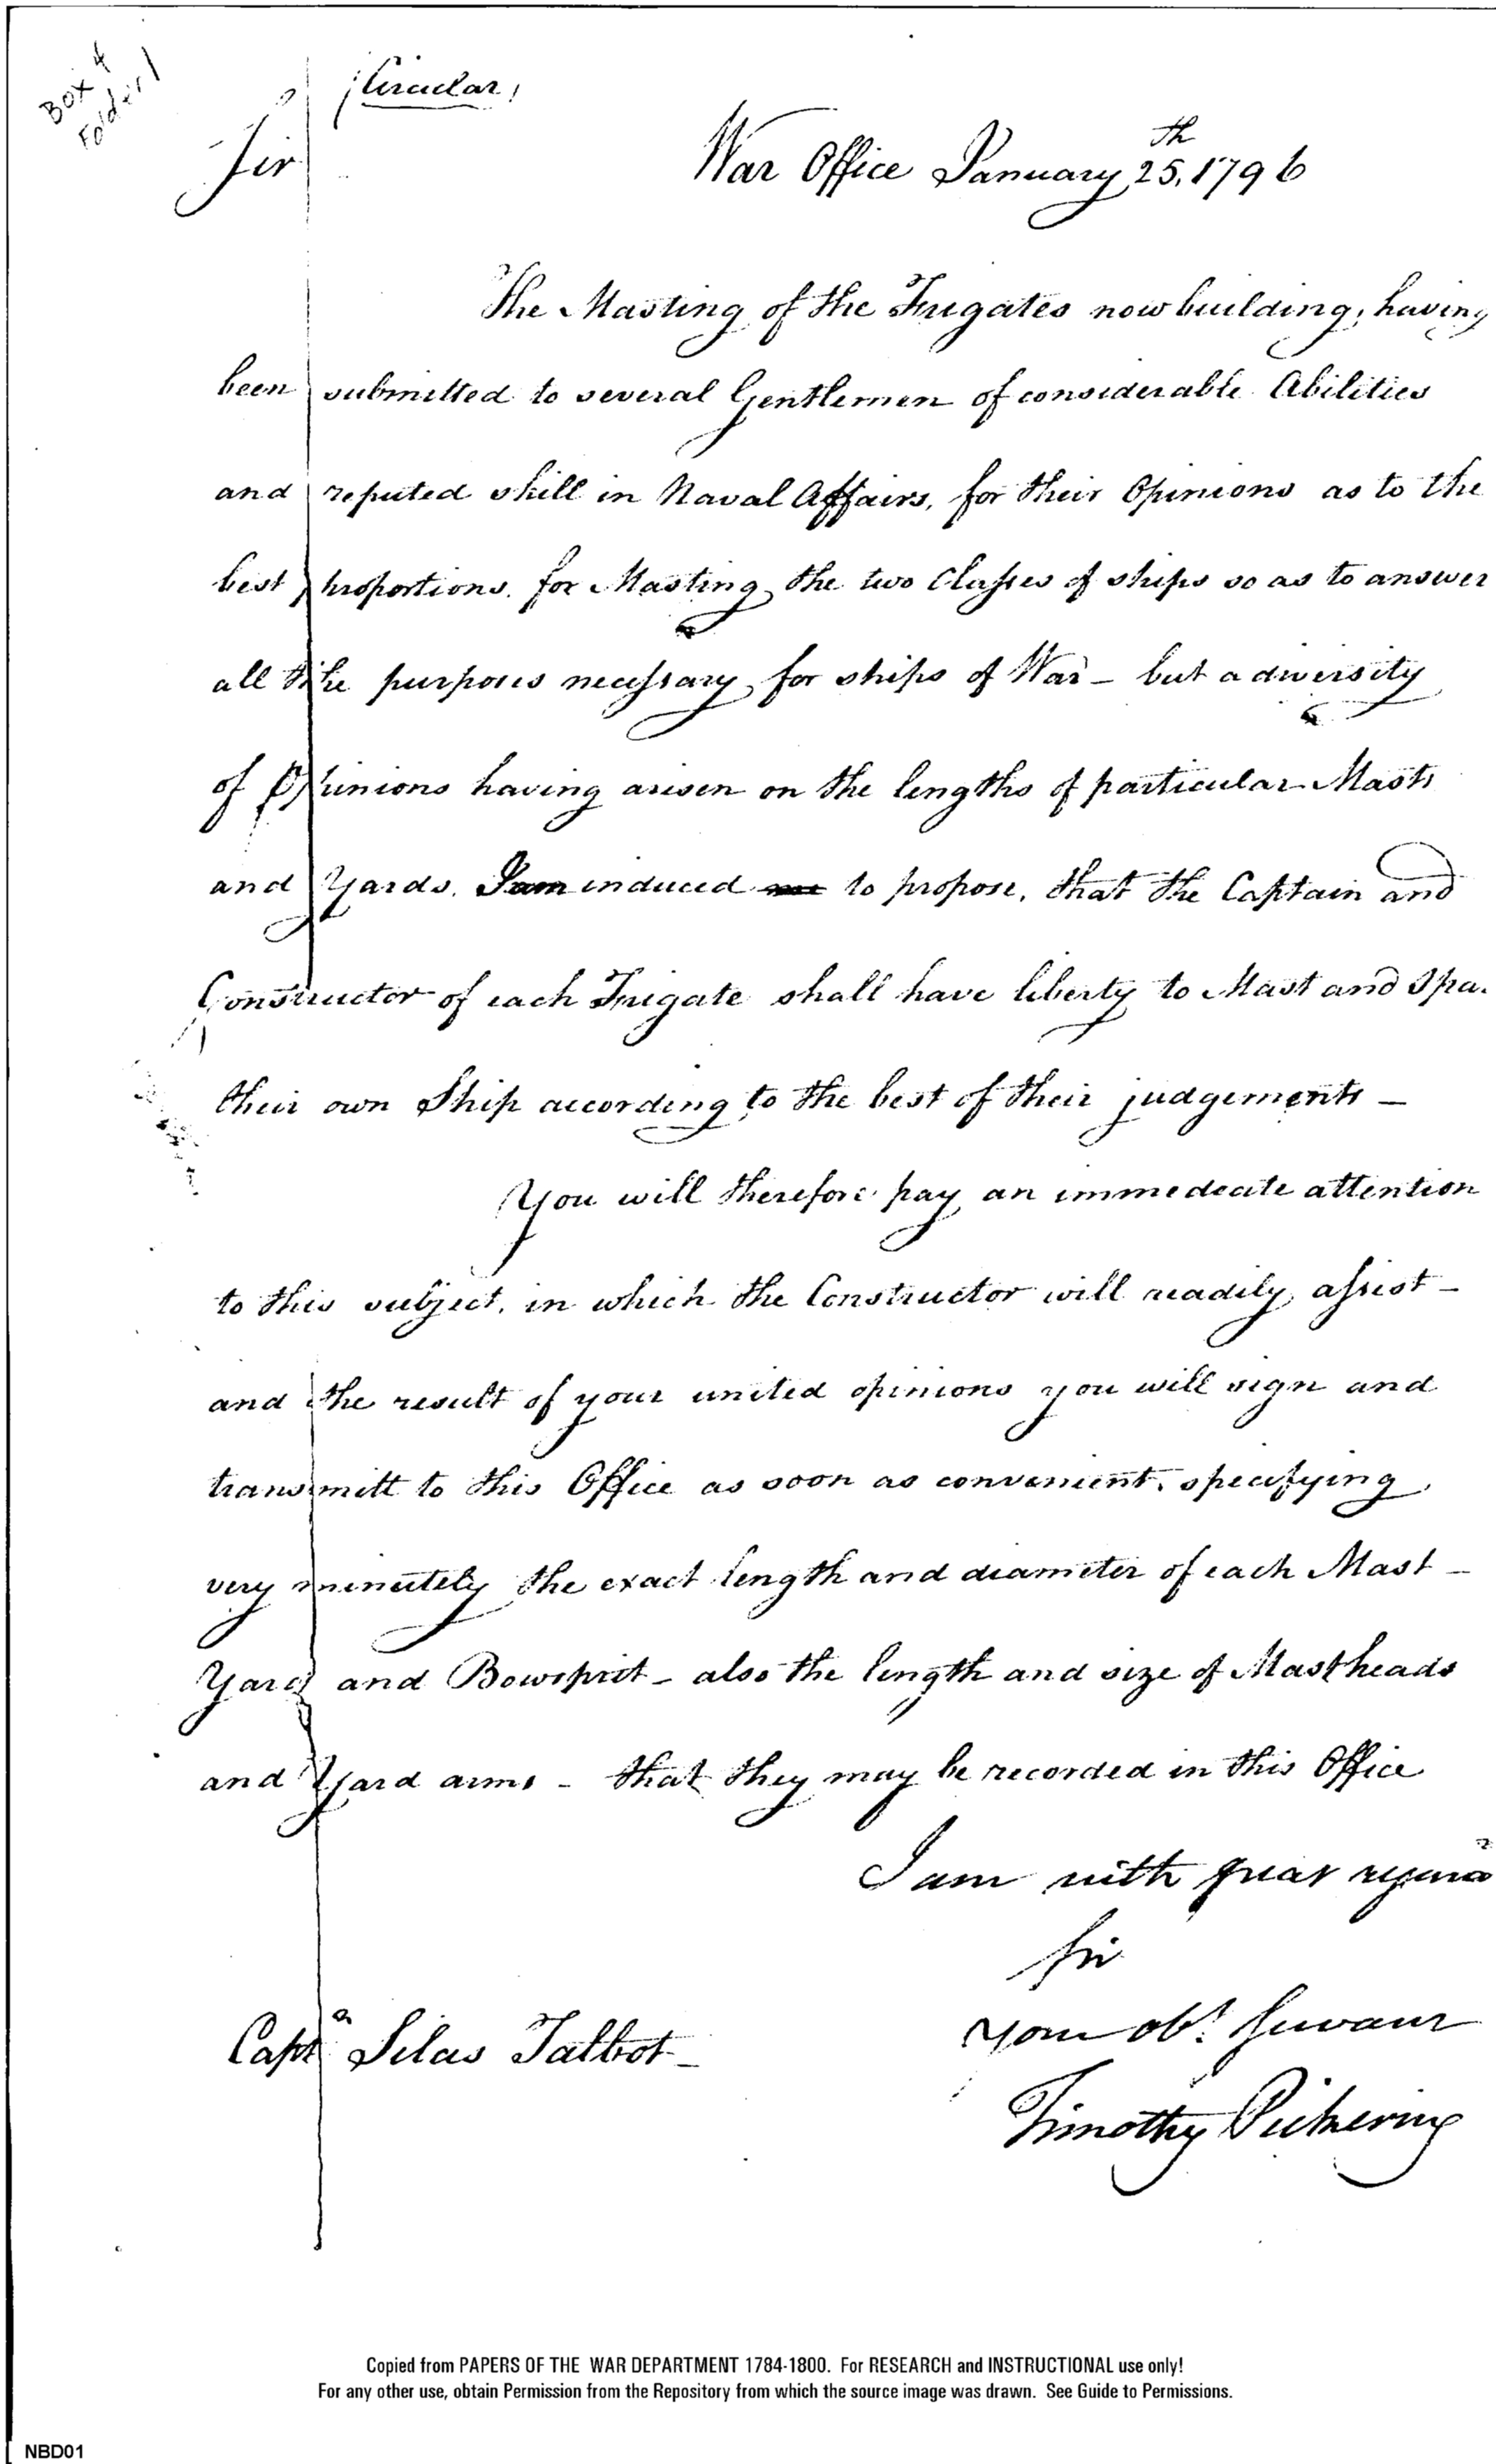 Box 4
Folder 1
(Circular)
Sir
War Office January 25th, 1796
The Masting of the Frigates now building, having
been submitted to several Gentlemen of considerable Abilities
and reputed skill in Naval Affairs, for their Opinions as to the
best proportions for Masting the two Classes of ships so as to answer
all the purposes necessary for ships of War – but a diversity
of Opinions having arisen on the lengths of particular Masts
and Yards. I am induced to propose, that the Captain and
Constructor of each Frigate shall have liberty to Mast and Spar
their own Ship according to the best of their judgements –
You will therefore pay an immediate attention
to this subject, in which the Constructor will readily assist –
and the result of your united opinions you will sign and
transmitt to this Office as soon as convenient, specifying
very minutely the exact length and diameter of each Mast –
Yard and Bowsprit – also the length and size of Mastheads
and Yard arms – that they may be recorded in this Office
I am with great regard
Sir
Your obt. Servant
Timothy Pickering
Captn Silas Talbot –
Copied from PAPERS OF THE WAR DEPARTMENT 1784-1800. For RESEARCH and INSTRUCTIONAL use only!
For any other use, obtain Permission from the Repository from which the source image was drawn. See Guide to Permissions.
NBD01